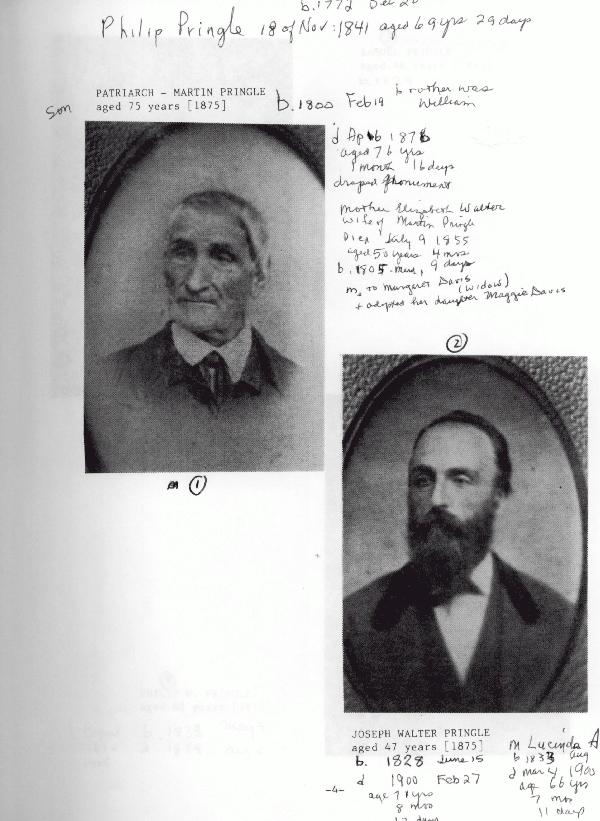 b. 1772 Dec 20
Philip Pringle 18 of Nov: 1841 aged 69 yrs 29 days
Son
PATRIARCH - MARTIN PRINGLE
aged 75 years [1875]
b. 1800 Feb 19
brother was
William
d Ap 6 1876
aged 76 yrs
1 month 16 days
draped monument
Mother Elizabeth Walter
wife of Martin Pringle
Died July 9 1855
aged 50 years 4 mos
b. 1805 9 days
m. to Margaret Davis
(widow)
+ adopted her daughter Maggie Davis
2
1
JOSEPH WALTER PRINGLE
aged 47 years [1875]
b. 1828 June 15
d 1900 Feb 27
age 71 yrs
8 mos
12 days
m Lucinda A
b 1833 aug
d mar 4 1900
age 66 yrs
7 mos
11 days
-4-